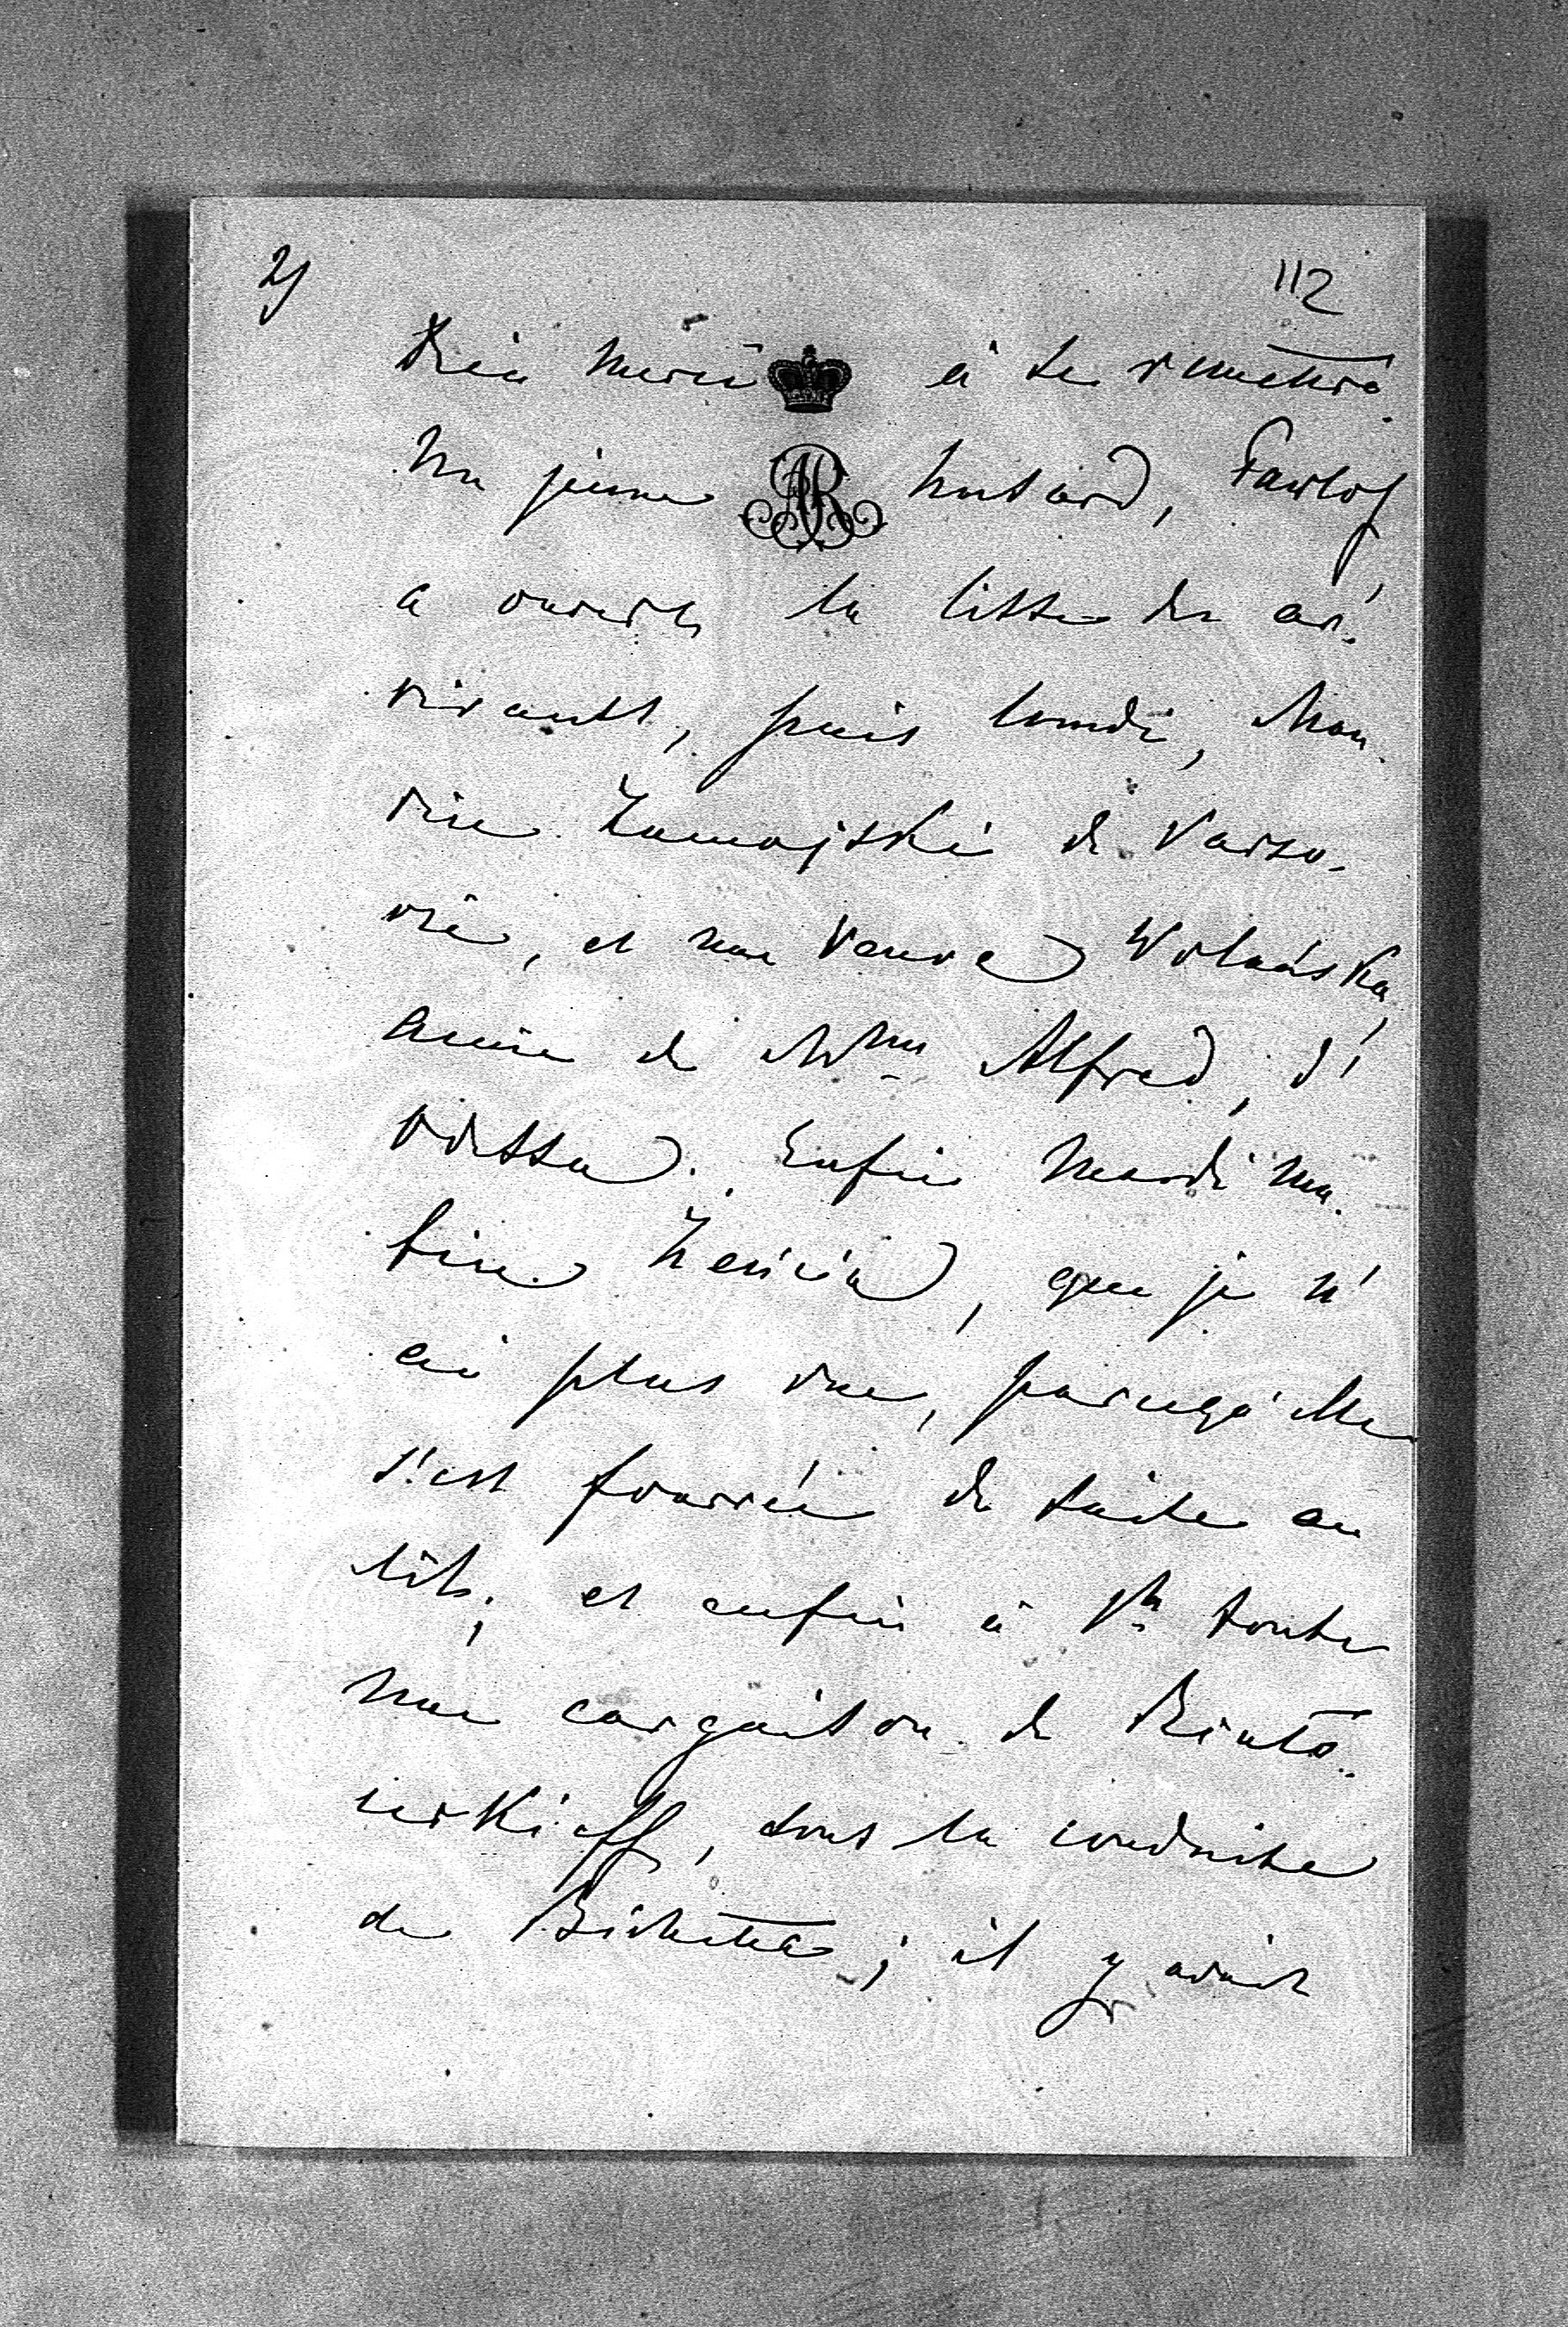 2) 112
à se remettre.
Un jeune husard, Pawlof,
a ouvert la liste des ar-
rivants, puis lundi, Mau-
rice Zamojski de Varso-
vie, et une veuve Wolańska,
amie de Mme Alfred, d'
Odessa. Enfin mardi ma-
tin, que je n'
ai plus vue, parcequ'elle
s'est fourrée de suite au
lit; et enfin à 1h toute
une cargaison de
sous la conduite
de Bichette; il y avait